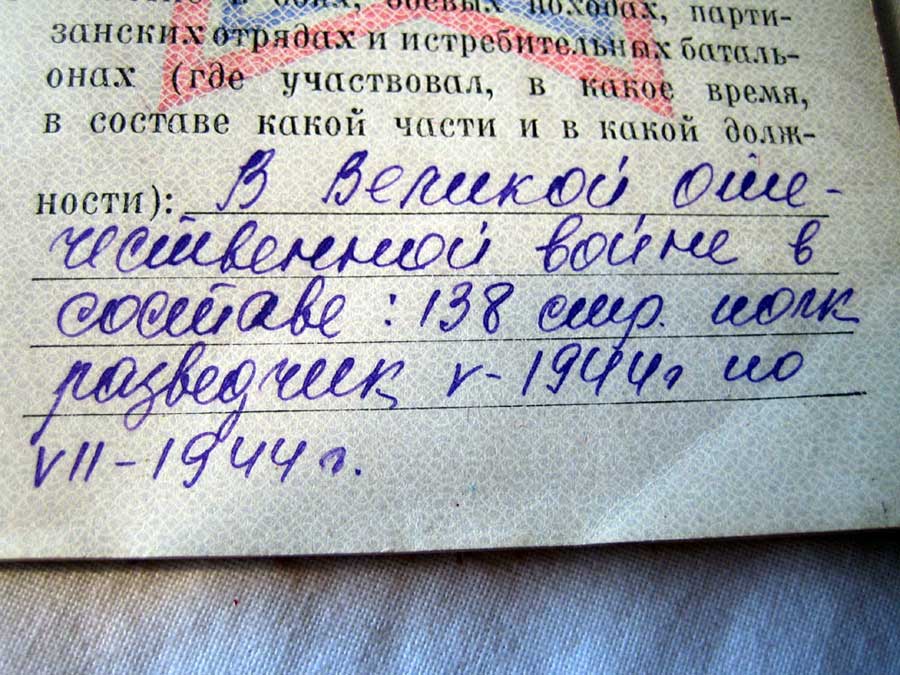 в боях, боевых походах, парти-
занских отрядах и истребительных баталь-
онах (где участвовал, в какое время,
в составе какой части и в какой долж-
ности): В Великой оте-
чественной войне в
составе: 138 стр. полк
разведчик V-1944г по
VII-1944 г.